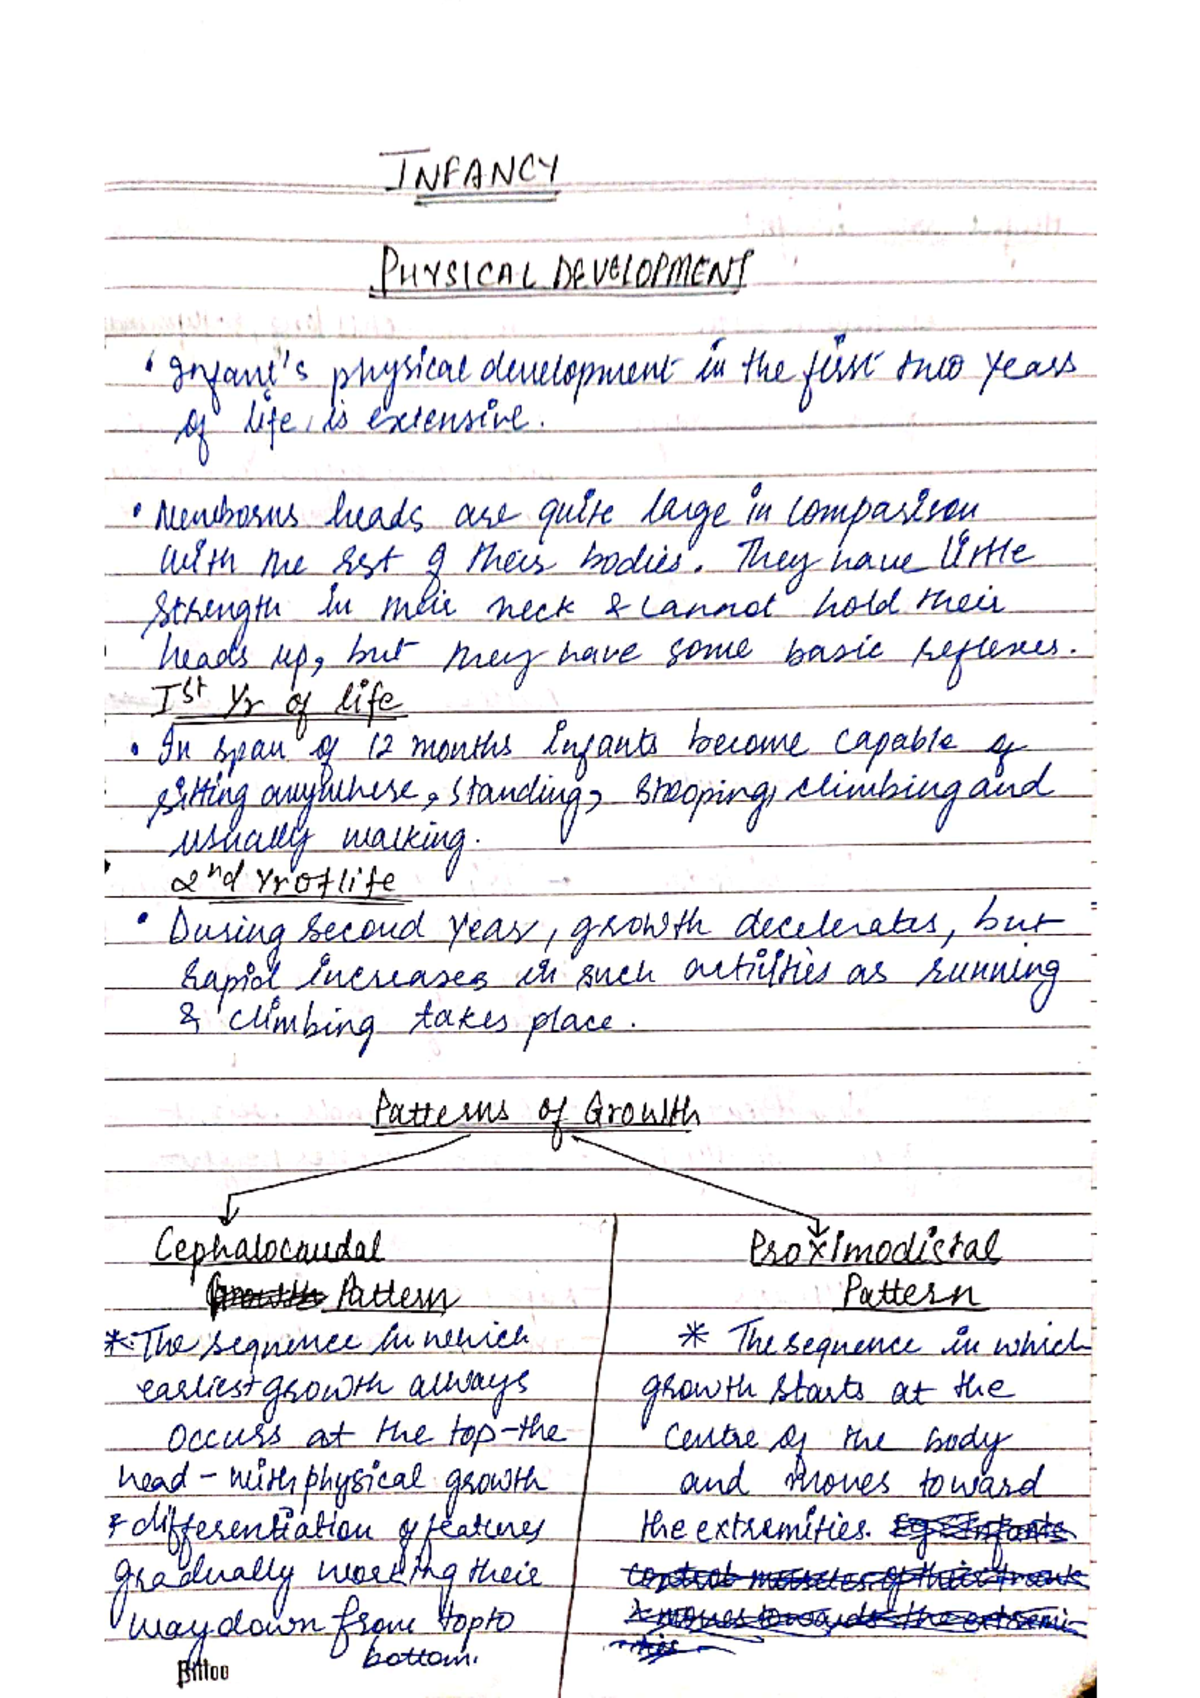 INFANCY
PHYSICAL DEVELOPMENT
• Infant's physical development in the first two years
of life, is extensive.
• Newborns heads are quite large in comparison
with the rest of their bodies. They have little
strength in their neck & cannot hold their
heads up, but they have some basic reflexes.
Ist Yr of life
• In span of 12 months infants become capable of
sitting anywhere, standing, stooping, climbing and
usually walking.
2nd Yr of life
• During second year, growth decelerates, but
rapid increases in such activities as running
& climbing takes place.
Patterns of Growth
Cephalocaudal
Growth Pattern
* The sequence in which
earliest growth always
occurs at the top - the
head - with physical growth
& differentiation of features
gradually working their
way down from top to
bottom.
Proximodistal
Pattern
* The sequence in which
growth starts at the
centre of the body
and moves toward
the extremities. Eg - Infants
control muscles of their trunk
& moves towards the extremi-
ties
Bittoo